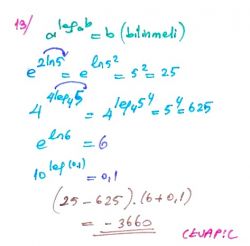 13/
a^log_a b = b (bilinmeli)
e^2ln5 = e^ln5² = 5² = 25
4^4log₄5 = 4^log₄5⁴ = 5⁴ = 625
e^ln6 = 6
10^log(0,1) = 0,1
(25 - 625) . (6 + 0,1)
= - 3660
CEVAP: C